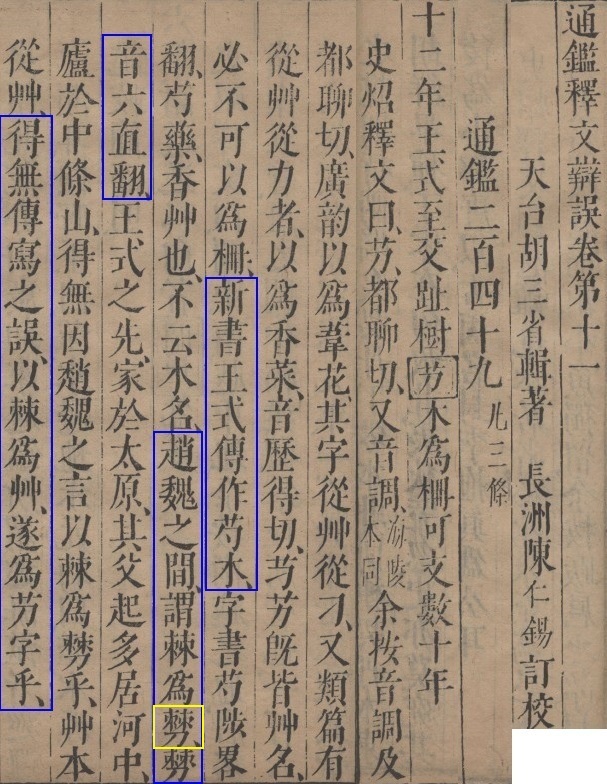 通鑑釋文辯誤卷第十一
天台胡三省輯著 長洲陳仁錫訂校
通鑑二百四十九 凡三條
十二年王式至交趾樹芀木爲柵可支數十年
史炤釋文曰芀都聊切又音調海陵本同余按音調及
都聊切廣韵以爲葦花其字從艸從刁又類篇有
從艸從力者以爲香菜音歷得切芀芳旣皆艸名
必不可以爲柵新書王式傳作芍木字書芍陟畧
翻芍藥香艸也不云木名趙魏之間謂棘爲僰僰
音六直翻王式之先家於太原其父起多居河中
廬於中條山得無因趙魏之言以棘爲僰乎艸本
從艸得無傳寫之誤以棘爲艸遂爲芀字乎